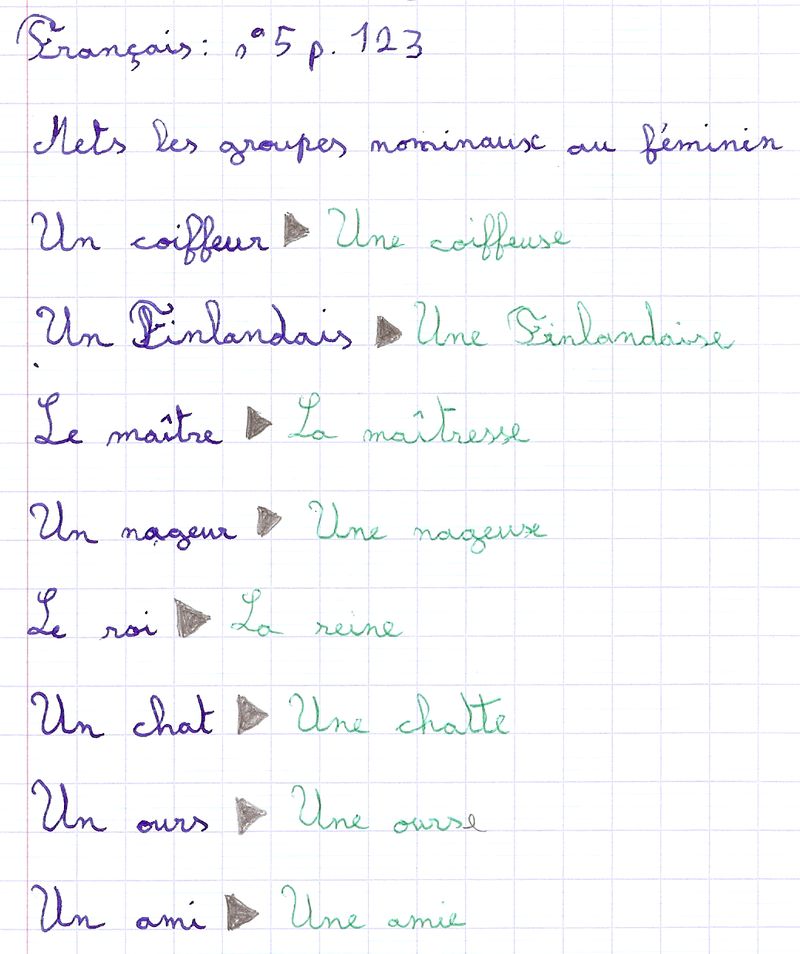 Français : n° 5 p. 123
Mets les groupes nominaux au féminin
Un coiffeur ▶ Une coiffeuse
Un Finlandais ▶ Une Finlandaise
Le maître ▶ La maîtresse
Un nageur ▶ Une nageuse
Le roi ▶ La reine
Un chat ▶ Une chatte
Un ours ▶ Une ourse
Un ami ▶ Une amie